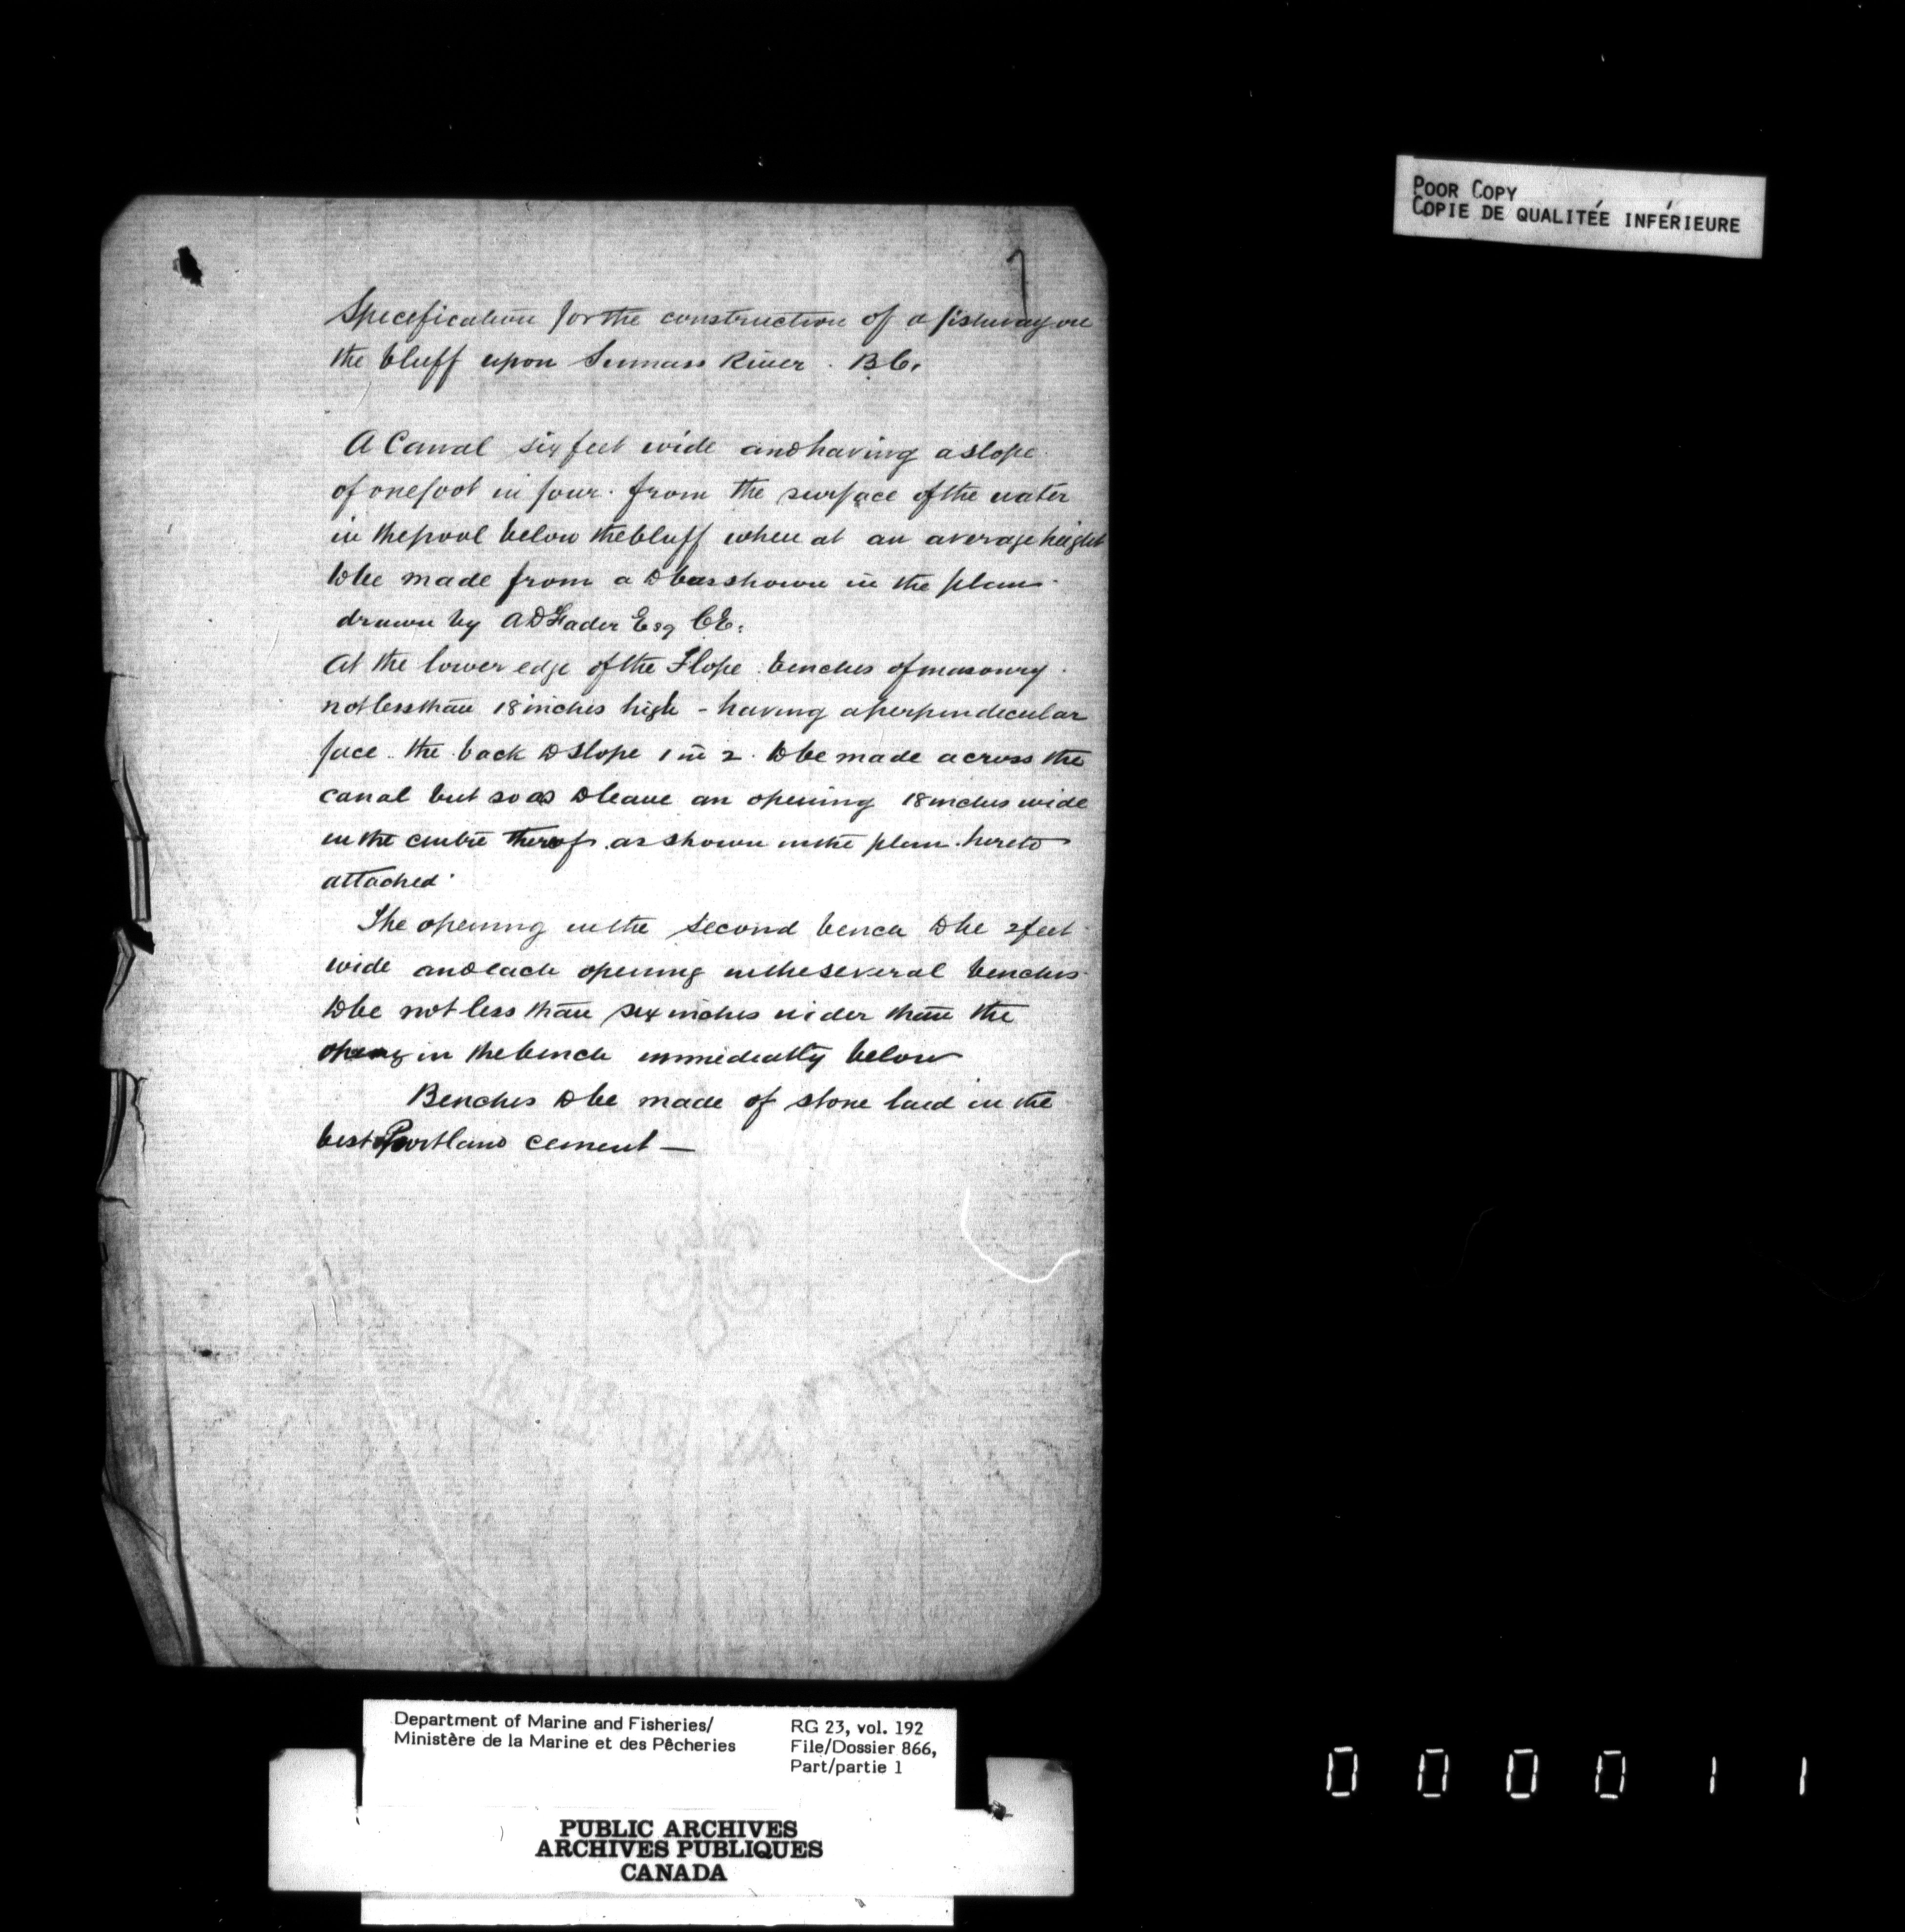 POOR COPY
COPIE DE QUALITÉE INFÉRIEURE
7
Specification for the construction of a fishway on
the bluff upon Sumass River. B.C.
A Canal six feet wide and having a slope
of one foot in four. from the surface of the water
in the pool below the bluff when at an average height
to be made from a to b as shown in the plan
drawn by A D Fader Esq C.E.
At the lower edge of the Slope benches of masonry
not less than 18 inches high - having a perpendecular
face. the back to slope 1 in 2. to be made across the
canal but so as to leave an opening 18 inches wide
in the centre thereof. as shown in the plan hereto
attached.
The opening in the second bench to be 2 feet
wide and each opening in the several benches
to be not less than six inches wider than the
opening in the bench immediatly below
Benches to be made of stone laid in the
best Portland cement —
Department of Marine and Fisheries/
Ministère de la Marine et des Pêcheries
RG 23, vol. 192
File/Dossier 866,
Part/partie 1
PUBLIC ARCHIVES
ARCHIVES PUBLIQUES
CANADA
000011